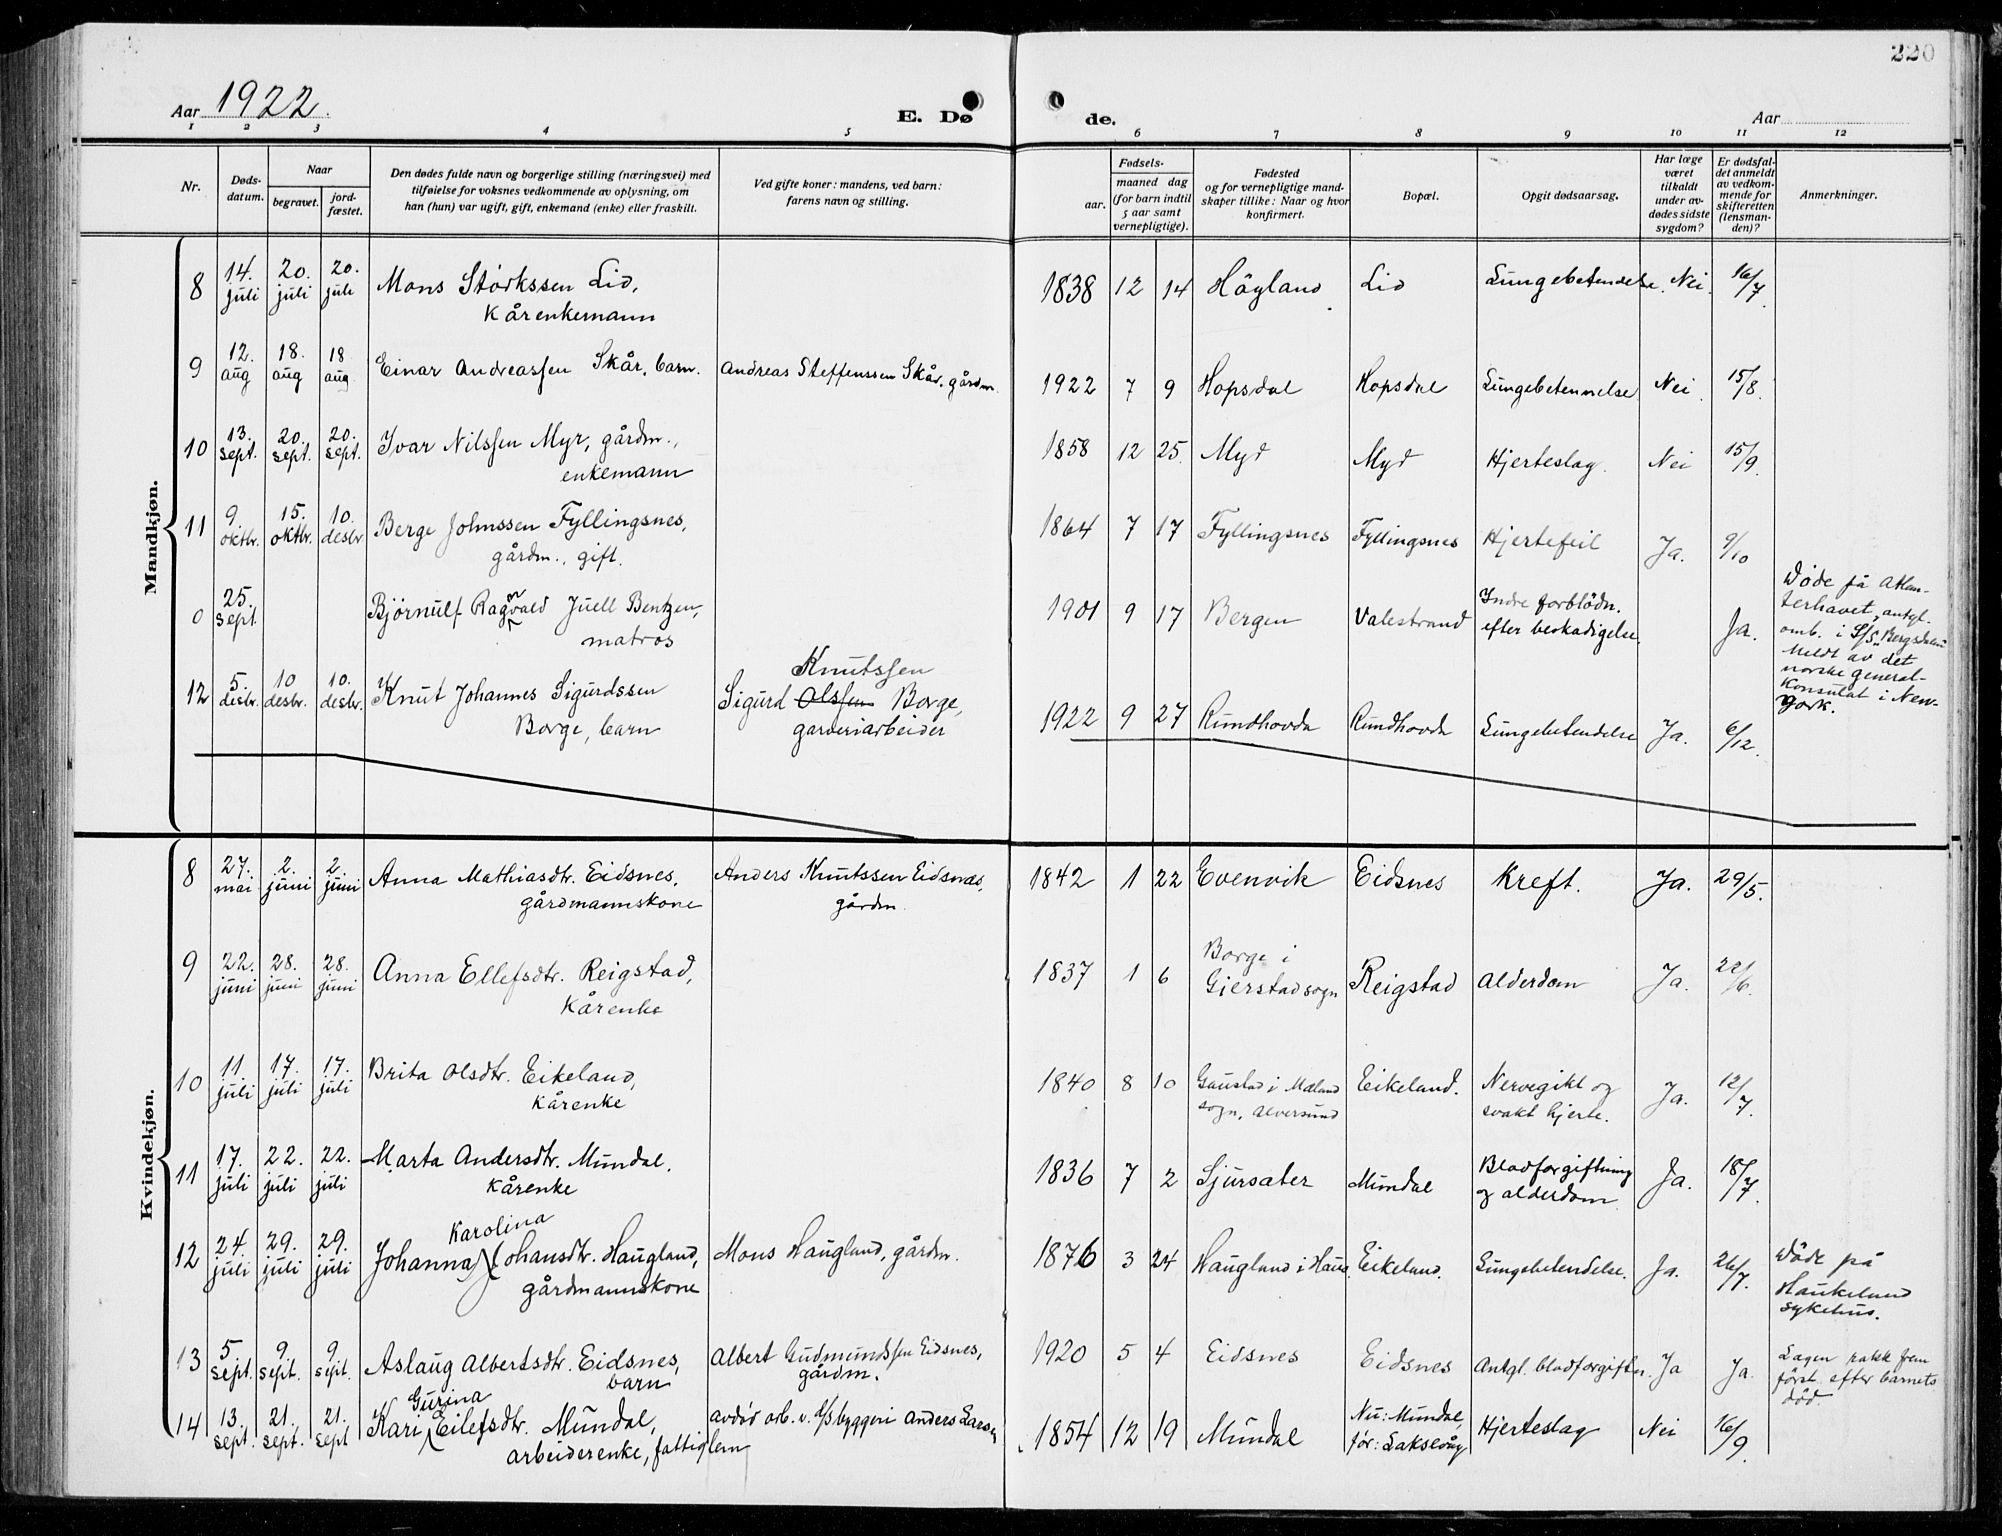 220
Aar 1922.
E. Døde.
Aar
1 2 3 4 5 6 7 8 9 10 11 12
Nr.
Døds-datum.
Naar
begravet.
jord-fæstet.
Den dødes fulde navn og borgerlige stilling (næringsvei) med
tilføielse for voksnes vedkommende av oplysning, om
han (hun) var ugift, gift, enkemand (enke) eller fraskilt.
Ved gifte koner: mandens, ved barn:
farens navn og stilling.
Fødsels-
aar.
maaned dag
(for barn indtil
5 aar samt
vernepligtige).
Fødested
og for vernepligtige mand-
skaper tillike: Naar og hvor
konfirmert.
Bopæl.
Opgit dødsaarsag.
Har læge
været
tilkaldt
under av-
dødes sidste
sygdom?
Er dødsfal-
det anmeldt
av vedkom-
mende for
skifteretten
(lensman-
den)?
Anmerkninger.
Mandkjøn.
8 14. juli 20. juli 20. juli Mons Störkssen Lid, 1838 12 14 Höyland Lid Lungebetendelse. Nei. 16/7
Kårenkemann
9 12. aug 18. aug 18 aug Einar Andreassen Skår, barn. Andreas Steffenssen Skår, gårdm. 1922 7 9 Hopsdal Hopsdal Lungebetennelse Nei 15/8.
10 13. sept. 20. sept. 20. sept. Ivar Nilssen Myr, gårdm., 1858 12 25. Myr Myr Hjerteslag. Nei 15/9.
enkemann
11 9. oktbr. 15. oktbr. 10. desbr. Berge Johnssen Fyllingsnes, 1864 7 17 Fyllingsnes Fyllingsnes Hjertefeil Ja. 9/10
gårdm., gift.
0 25. sept. Bjørnulf Ragnvald Juell Bentzen, 1901 9 17 Bergen Valestrand Indre forblödn. Ja.
matros
efter beskadigelse.
Døde på Atlan-
terhavet, antgl.
omb. i S/S „Bergsdalen"
Meldt av det
norske general-
konsulat i New-
York.
12 5. desbr. 10 desbr. 10. desbr. Knut Johannes Sigurdssen Sigurd Olssen Knutssen Borge, 1922 9 27 Rundhovda Rundhovda Lungebetendelse Ja. 6/12.
Borge, barn garveriarbeider
Kvindekjøn.
8 27. mai 2. juni 2. juni Anna Mathiasdtr. Eidsnes, Anders Knutssen Eidsnes, 1842 1 22 Evenvik Eidsnes Kreft. Ja. 29/5.
gårdmannskone gårdm.
9 22. juni 28. juni 28. juni Anna Ellefsdtr. Reigstad, 1837 1 6 Borge i Reigstad Alderdom Ja. 22/6.
Kårenke Gjerstad sogn
10 11. juli 17. juli 17. juli Brita Olsdtr. Eikeland, 1840 8 10 Gaustad i Mæland Eikeland. Nervegikt og Ja. 12/7.
kårenke sogn, Alversund svakt hjerte.
11 17. juli 22. juli 22. juli Marta Andersdtr. Mundal. 1836 7 2 Sjursæter Mundal Blodforgiftning Ja. 18/7.
Kårenke og alderdom
12 24. juli 29. juli 29. juli Johanna Karolina Johansdtr. Haugland, Mons Haugland, gårdm. 1876 3 24 Haugland i Haus Eikeland. Lungebetendelse. Ja. 26/7. Döde på
gårdmannskone Haukeland
sykehus.
13 5. sept. 9. sept. 9. sept. Aslaug Albertsdtr. Eidsnes, Albert Gudmundssen Eidsnes, 1920 5 4 Eidsnes Eidsnes Antgl. blodforgiftn. Ja Ja. Lægen rakk frem
barn gårdm. först efter barnets
död.
14 13. sept. 21. sept. 21. sept Kari Gurina Eilefsdtr. Mundal, avdør arb. v. d/s byggeri Anders Larsen 1854 12 19 Mundal Nu: Mundal, Hjerteslag Nei 16/9.
arbeiderenke, fattiglem før: Laksevåg